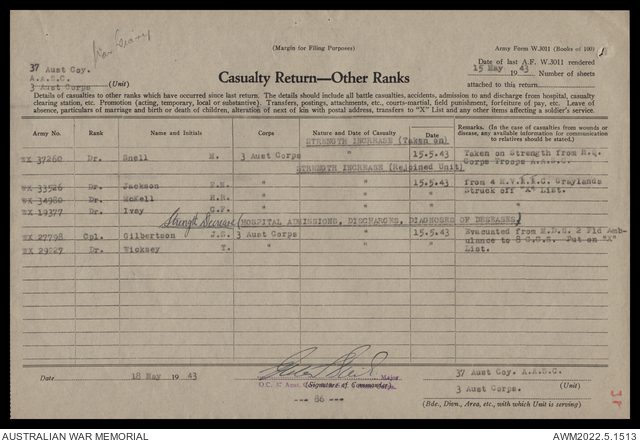 War Diary
(Margin for Filing Purposes)
Army Form W.3011 (Books of 100)
37 Aust Coy.
A.A.S.C.
3 Aust Corps (Unit)
Casualty Return—Other Ranks
Date of last A.F. W.3011 rendered
15 May 1943 Number of sheets
attached to this return
Details of casualties to other ranks which have occurred since last return. The details should include all battle casualties, accidents, admission to and discharge from hospital, casualty
clearing station, etc. Promotion (acting, temporary, local or substantive). Transfers, postings, attachments, etc., courts-martial, field punishment, forfeiture of pay, etc. Leave of
absence, particulars of marriage and birth or death of children, alteration of next of kin with postal address, transfers to "X" List and any other items affecting a soldier's service.
Army No. Rank Name and Initials Corps Nature and Date of Casualty Date Remarks. (In the case of casualties from wounds or disease, any available information for communication to relatives should be stated.)
STRENGTH INCREASE (Taken on)
WX 37260 Dr. Snell M. 3 Aust Corps " 15.5.43 Taken on Strength from H.Q.
Corps Troops A.A.S.C.
STRENGTH INCREASE (Rejoined Unit)
WX 33526 Dr. Jackson " " 15.5.43 from 4 M.V.R.R.C. Graylands
WX 34980 Dr. McKell H.H. " " " Struck off "X" List.
WX 19377 Dr. Ivey G.F. " " "
Strength Decrease (HOSPITAL ADMISSIONS, DISCHARGES, DIAGNOSES OF DESEASES)
WX 27798 Cpl. Gilbertson J.S. 3 Aust Corps " 15.5.43 Evacuated from M.D.S. 2 Fld Amb-
ulance to 8 C.C.S. Put on "X"
WX 29227 Dr. Wicksey T. " " " List.
Date 18 May 1943
Major
O.C. 37 Aust.
(Signature of Commander)
37 Aust Coy. A.A.S.C.
(Unit)
3 Aust Corps.
(Bde., Divn., Area, etc., with which Unit is serving)
--- 86 ---
AUSTRALIAN WAR MEMORIAL
AWM2022.5.1513